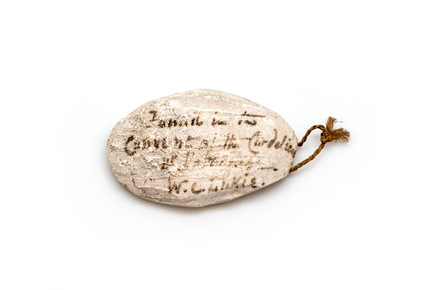 Found in the
Convent of the Cordeliers
at
W.C. Wilkie.